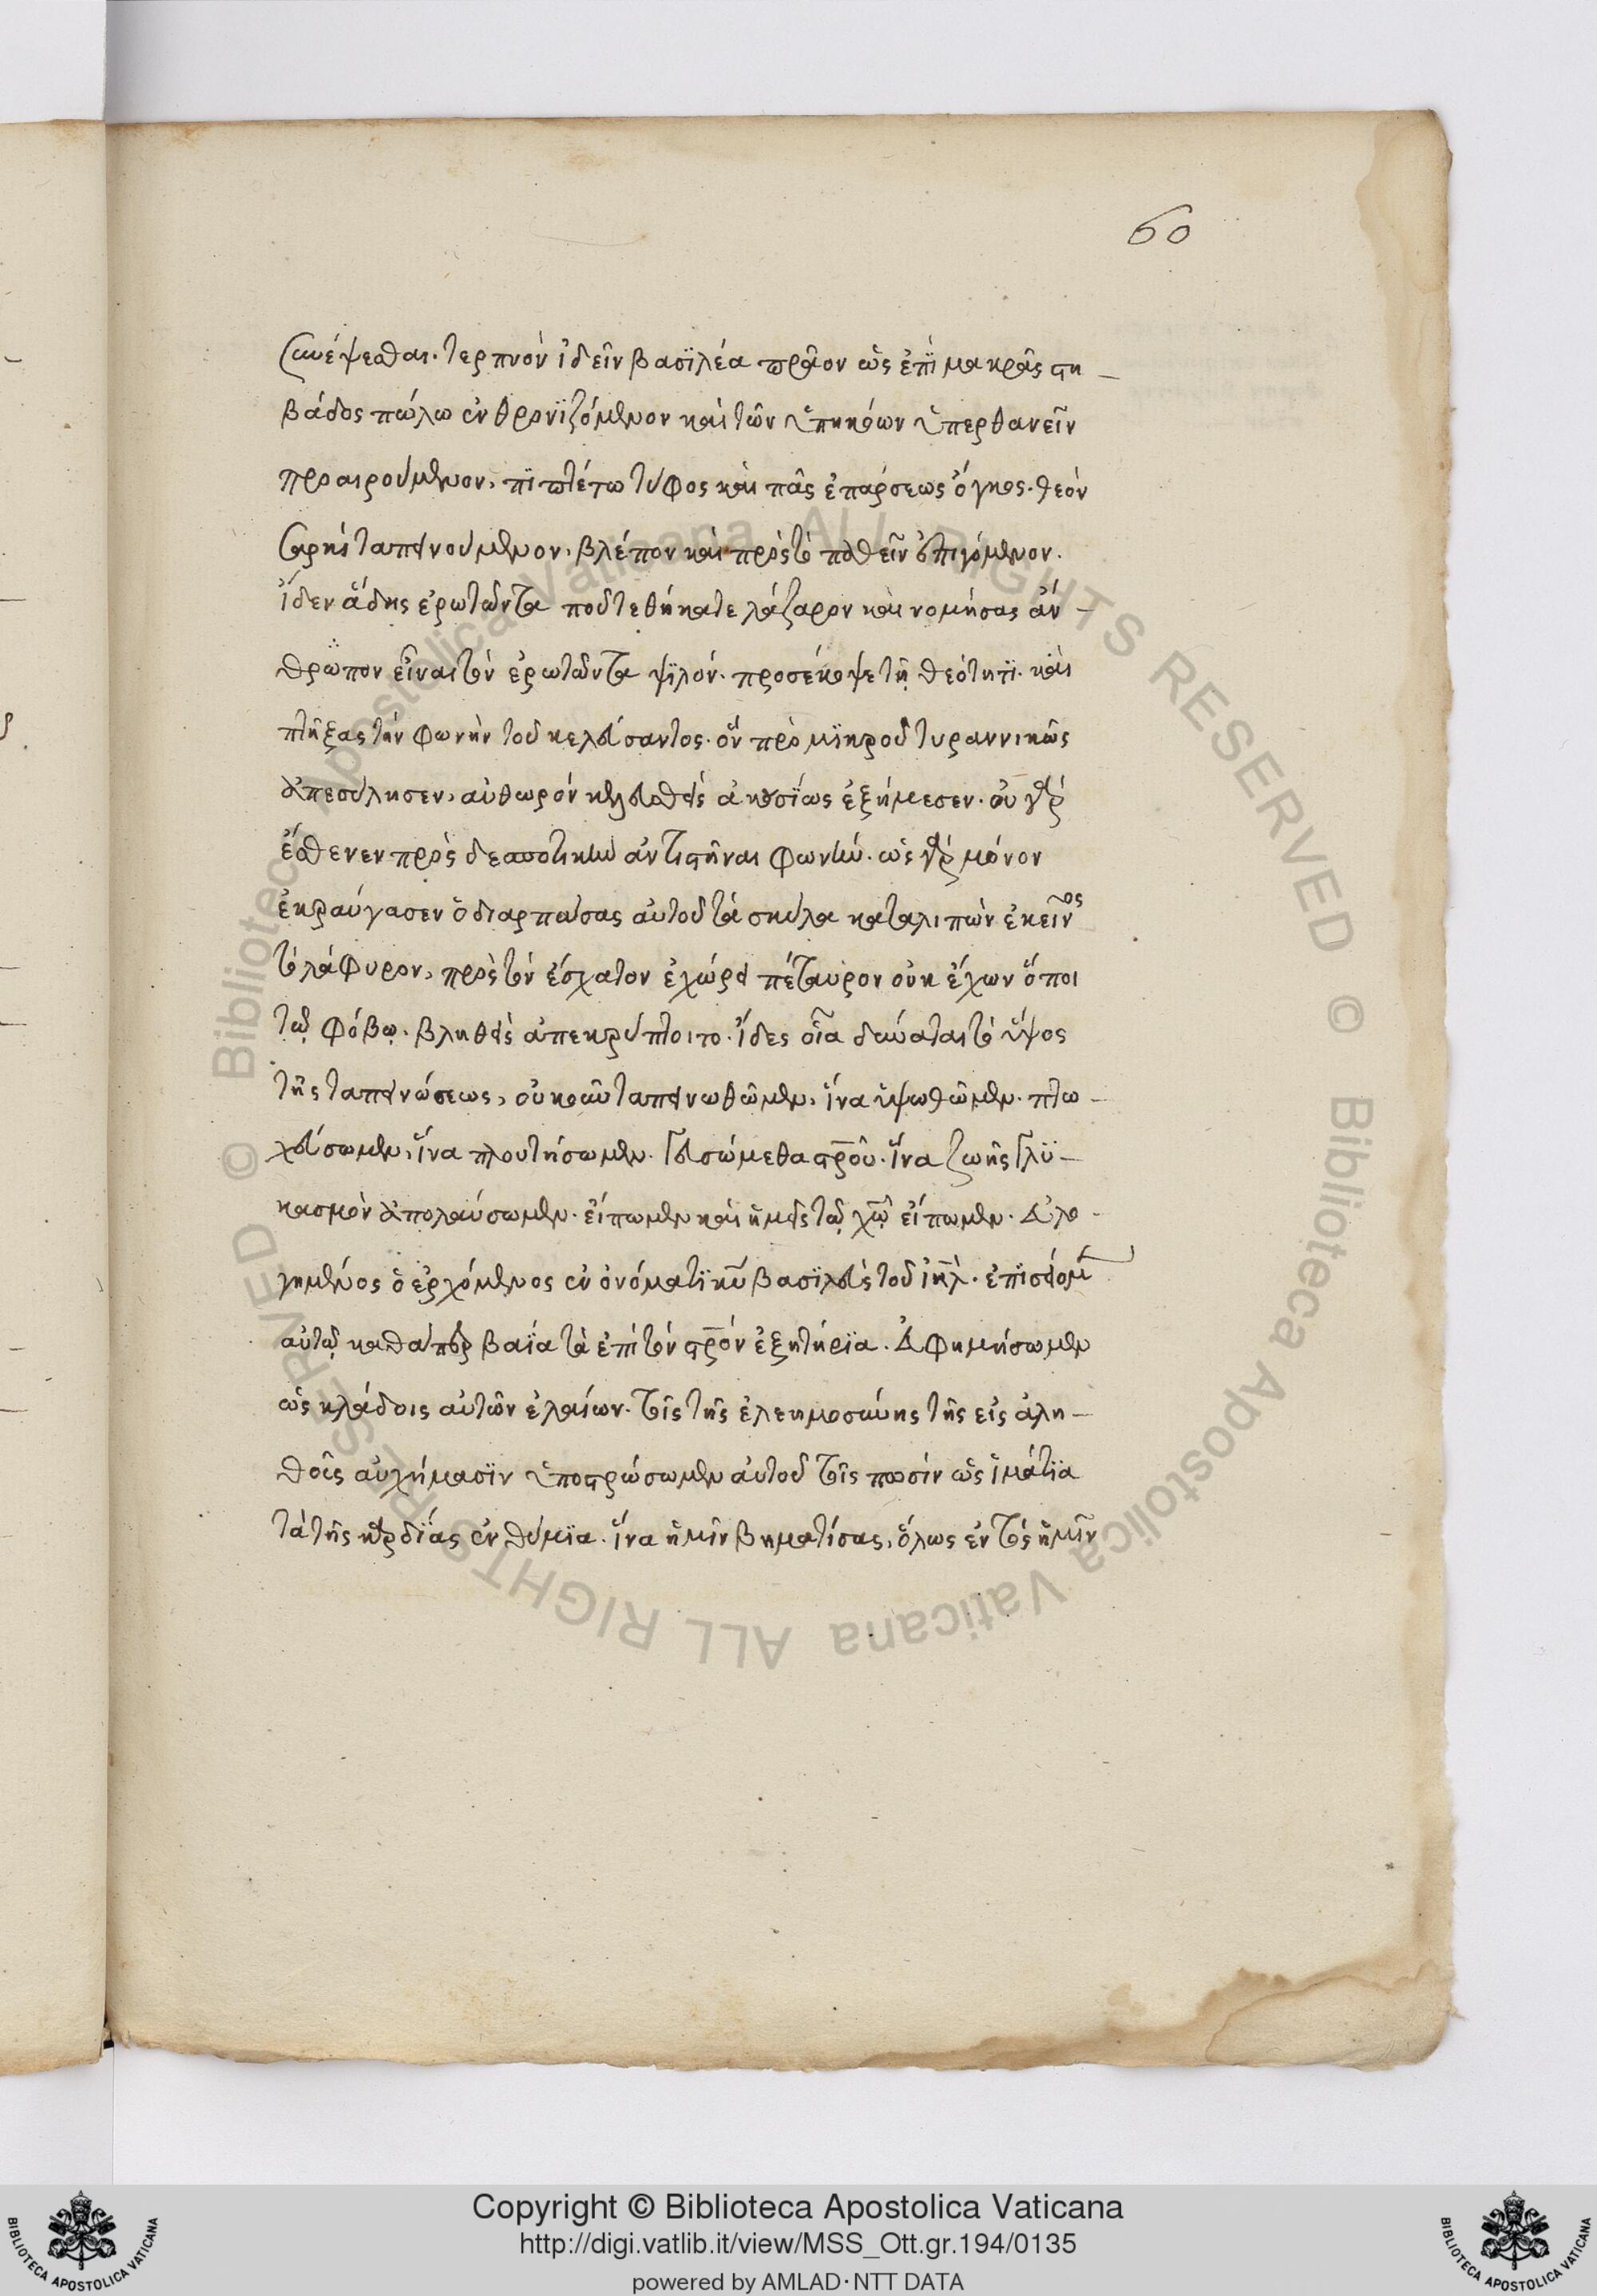 60
συνέψεσθαι. τερπνὸν ἰδεῖν βασϊλέα πρᾶον ὡς ἐπῒ μακρᾶς στη-
βάδος πώλω ἐν θρονϊζόμενον καὶ τῶν ὑπηκόων ὑπερθανεῖν
προαιρούμενον. πιπτέτω τύφος καὶ πᾶς ἐπαρσεως ὄγκος. θεὸν
σαρκὶ ταπεινούμενον, βλέπον καὶ πρὸς τὸ παθεῖν ἐπιγόμενον.
ἴδεν ἅδης ἐρωτῶντα ποῦ τεθήκατε λάζαρον καὶ νομήσας ἄν-
θρωπον εἶναι τὸν ἐρωτῶντα ψϊλόν. προσέκοψε τῆ θεότητϊ. καὶ
πτῆξας τὴν φωνὴν τοῦ κελεύσαντος. ὃν πρὸ μϊκροῦ τυραννικῶς
ἀπεσύλησεν, αὐθωρὸν κενευθεὶς ἀκουσΐως ἐξήμεσεν. οὐ γὰρ
ἔσθενεν πρὸς δεσποτικὴν ἀντιστῆναι φωνήν. ὡς γὰρ μόνον
ἐκραύγασεν ὁ διαρπάσας αὐτοῦ τὰ σκύλα καταλιπὼν ἐκεῖνος
τὸ λάφυρον, πρὸς τὸν ἔσχατον ἐχώρει πέταυρον οὐκ ἔχων ὅποι
τῷ φόβῳ. βληθεὶς ἀπεκρύπτοιτο. ἴδες οἷα δύναται τὸ ὕψος
τῆς ταπεινώσεως, οὐκοῦν ταπεινωθῶμεν, ἵνα ὑψωθῶμεν. πτω-
χεύσωμεν, ἵνα πλουτήσωμεν. γευσώμεθα στρ̅οῦ. ἵνα ζωῆς γλϋ-
κασμὸν ἀπολαύσωμεν. εἴπωμεν καὶ ἡμεῖς τῷ χ̅ῷ εἴπωμεν. εὐλο-
γημένος ὁ ἐρχόμενος ἐν ὀνόματϊ κ̅υ̅ βασϊλεὺς τοῦ ἰη̅λ̅. ἐπϊσείομεν
αὐτῷ καθάπερ βαΐα τὰ ἐπὶ τὸν στρ̅ὸν ἐξητήρϊα. εὐφημήσωμεν
ὡς κλάδοις αὐτῶν ἐλαίων. τοῖς τῆς ἐλεημοσύνης τῆς εἰς ἀλη-
θοῖς αὐχήμασϊν ὑποστρώσωμεν αὐτοῦ τοῖς ποσὶν ὡς ἱμάτϊα
τὰ τῆς καρδΐας ἐν θύμϊα. ἵνα ἡμῖν βηματίσας, ὅλως ἐν τὸς ἡμῖν
Copyright © Biblioteca Apostolica Vaticana
http://digi.vatlib.it/view/MSS_Ott.gr.194/0135
powered by AMLAD·NTT DATA
BIBLIOTECA APOSTOLICA VATICANA
BIBLIOTECA APOSTOLICA VATICANA
© Biblioteca Apostolica Vaticana ALL RIGHTS RESERVED © Biblioteca Apostolica Vaticana ALL RIGHTS RESERVED